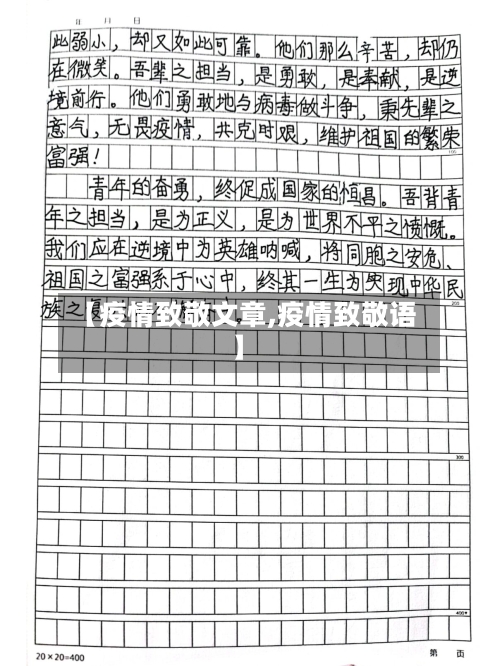 年 月 日
此弱小，却又如此可靠。他们那么辛苦，却仍
在微笑。吾辈之担当，是勇敢，是奉献，是逆
境前行。他们勇敢地与病毒做斗争，秉先辈之
意气，无畏疫情，共克时艰，维护祖国的繁荣
富强！
100
青年的奋勇，终促成国家的恒昌。吾背青
年之担当，是为正义，是为世界不平之愤慨。
我们应在逆境中为英雄呐喊，将同胞之安危、
祖国之富强系于心中，终其一生为实现中华民
族之复
200
【疫情致敬文章,疫情致敬语
】
300
400
20×20=400
第 页